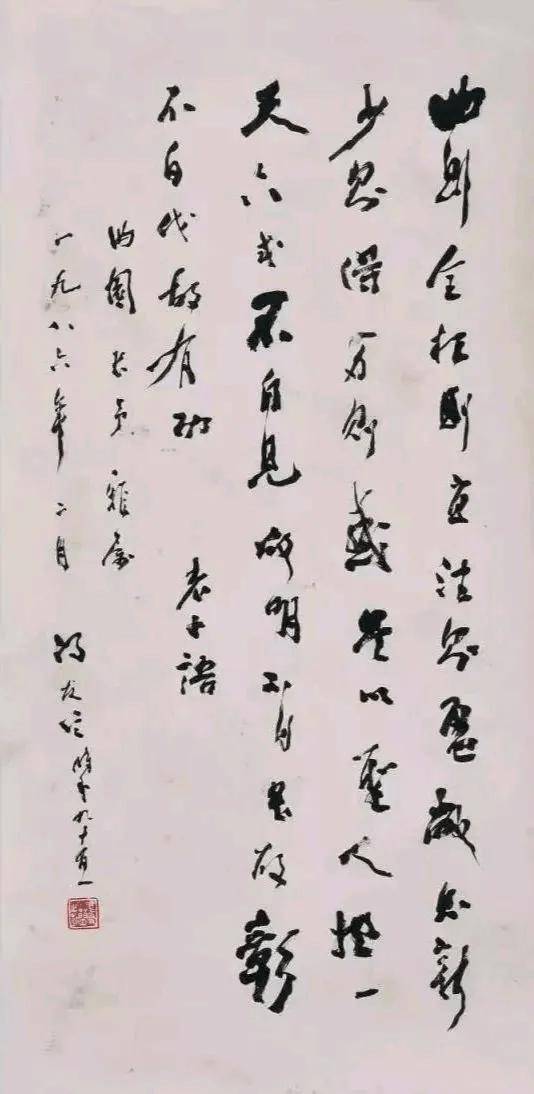 曲則全枉則直洼則盈敝則新
少則得多則惑是以聖人抱一
天下式不自見故明不自是故彰
不自伐故有功
老子語
雅屬
一九八六年二月 馮友蘭時年九十有一